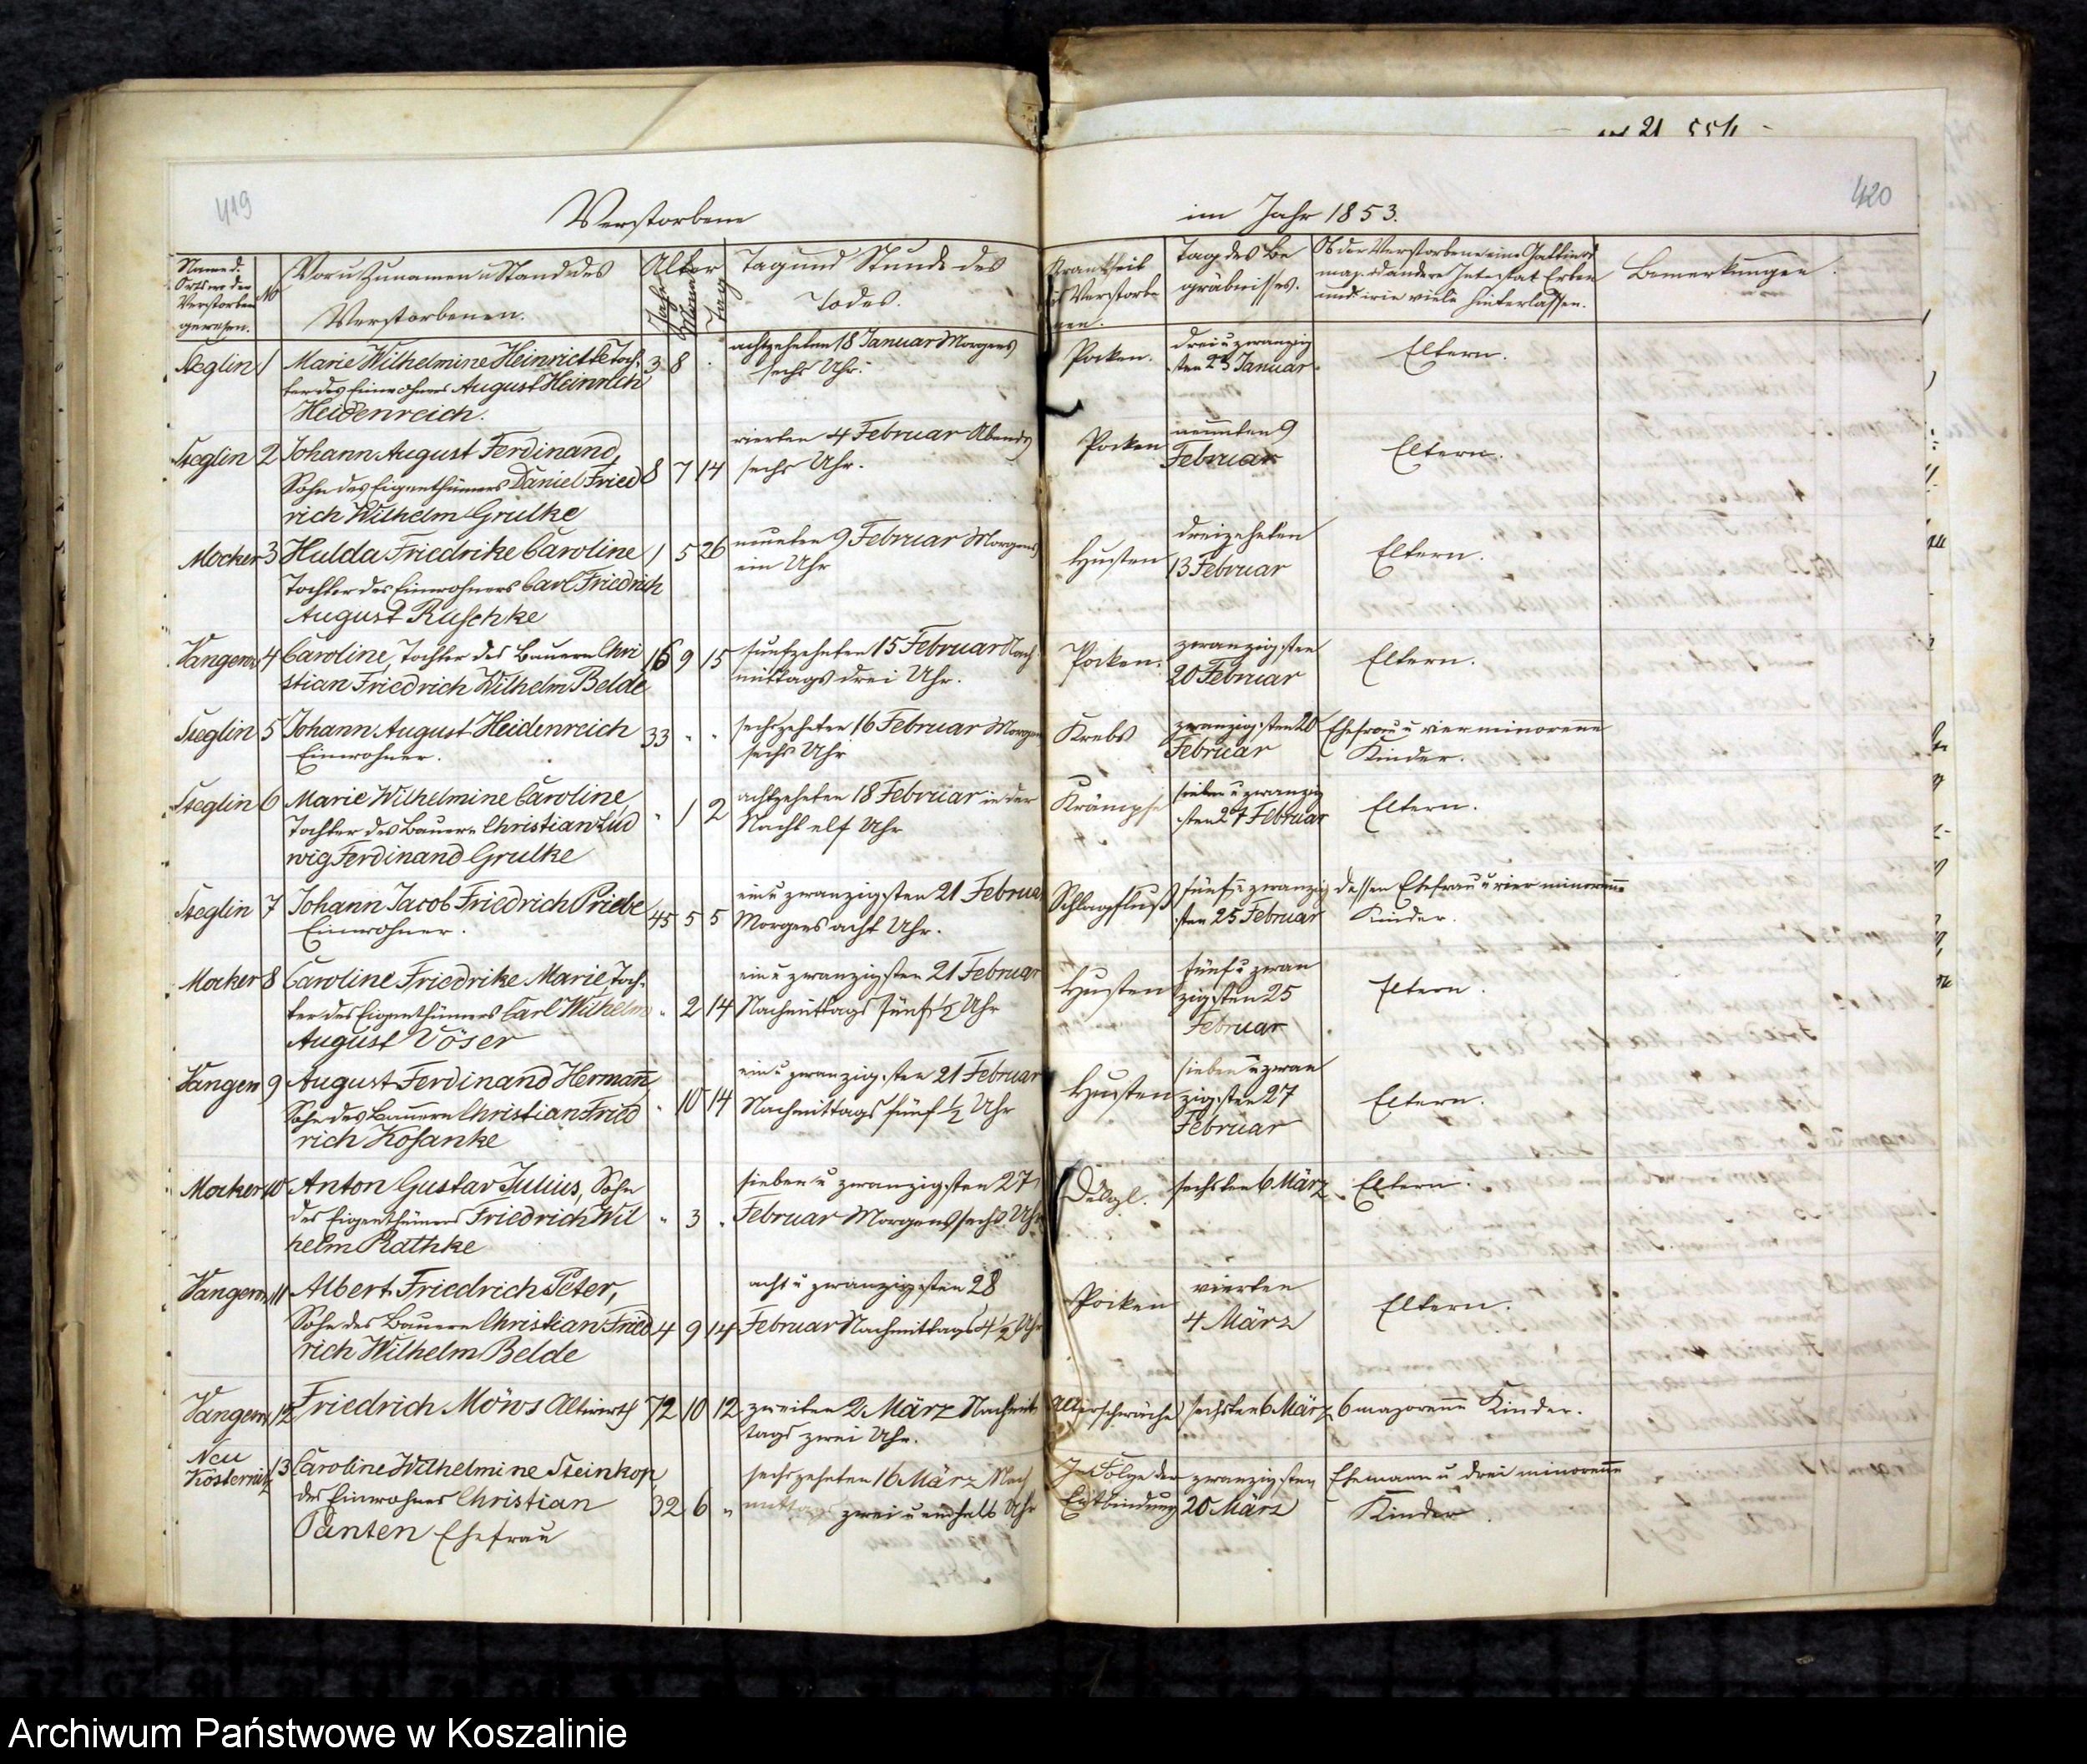 419
Verstorbene
Name d.
Orts wo der
Verstorben
gewesen.
No
Vor u Zunamen u Stand des
Verstorbenen.
Alter
Jahr
Monat
Tag
Tag und Stunde des
Todes.
Steglin 1 Marie Wilhelmine Heinriette Toch- 3 8 . achtzehnten 18 Januar Morgens
ter des Einwohners August Heinrich sechs Uhr.
Heidenreich.
Steglin 2 Johann August Ferdinand, vierten 4 Februar Abends
Sohn des Eigenthümers Daniel Fried 8 7 14 sechs Uhr.
rich Wilhelm Grulke
Mocker 3 Hulda Friedrike Caroline 1 5 26 neunten 9 Februar Morgens
Tochter des Einwohners Carl Friedrich ein Uhr
August Ruschke
Vangerow 4 Caroline, Tochter des Bauern Chri 16 9 15 funfzehnten 15 Februar Nach
stian Friedrich Wilhelm Belde mittags drei Uhr.
Steglin 5 Johann August Heidenreich 33 " " sechszehnten 16 Februar Morgen
Einwohner. sechs Uhr
Steglin 6 Marie Wilhelmine Caroline, " 1 2 achtzehnten 18 Februar in der
Tochter des Bauern Christian Lud Nacht elf Uhr
wig Ferdinand Grulke
Steglin 7 Johann Jacob Friedrich Priebe 45 5 5 ein u zwanzigsten 21 Februar
Einwohner. Morgens acht Uhr.
Mocker 8 Caroline Friedrike Marie, Toch- ein u zwanzigsten 21 Februar
ter des Eigenthümers Carl Wilhelm " 2 14 Nachmittags fünf ½ Uhr
August Vöser
Vangerow 9 August Ferdinand Hermann, ein u zwanzigsten 21 Februar
Sohn des Bauern Christian Fried " 10 14 Nachmittags fünf ½ Uhr
rich Kosanke
Mocker 10 Anton Gustav Julius, Sohn sieben u zwanzigsten 27
des Eigenthümers Friedrich Wil " 3 " Februar Morgens sechs Uhr
helm Rathke
Vangerow 11 Albert Friedrich Peter, acht u zwanzigsten 28
Sohn des Bauern Christian Fried 4 9 14 Februar Nachmittags 4 ½ Uhr
rich Wilhelm Belde
Vangerow 12 Friedrich Möws Altwirth 72 10 12 zweiten 2 März Nachmit
tags zwei Uhr.
Neu
Kösternitz 13 Caroline Wilhelmine Steinkop, sechszehnten 16 März Nach
des Einwohner Christian 32 6 " mittags zwei u einhalb Uhr
Panten Ehefrau
420
im Jahr 1853.
Krankheit
d Verstorbe
nen.
Tag des Be
gräbnisses.
Ob der Verstorbene eine Gattin od
maj. od andere Intestat Erben
und wie viele hinterlassen.
Bemerkungen.
Pocken. drei u zwanzig Eltern.
sten 23 Januar
Pocken neunten 9 Eltern.
Februar
Husten dreizehnten Eltern.
13 Februar
Pocken. zwanzigsten Eltern.
20 Februar
Krebs zwanzigsten 20 Ehefrau u vier minorenne
Februar Kinder.
Krämpfe sieben u zwanzig Eltern.
sten 27 Februar
Schlagfluß fünf u zwanzig dessen Ehefrau u vier minorenne
sten 25 Februar Kinder.
Husten fünf u zwan Eltern.
zigsten 25
Februar
Husten sieben u zwan Eltern.
zigsten 27
Februar
sechsten 6 März Eltern.
Pocken vierten Eltern.
4 März
Alterschwäche sechsten 6 März 6 majorenne Kinder.
In Folge der zwanzigsten Ehemann u drei minorenne
Entbindung 20 März Kinder.
Archiwum Państwowe w Koszalinie